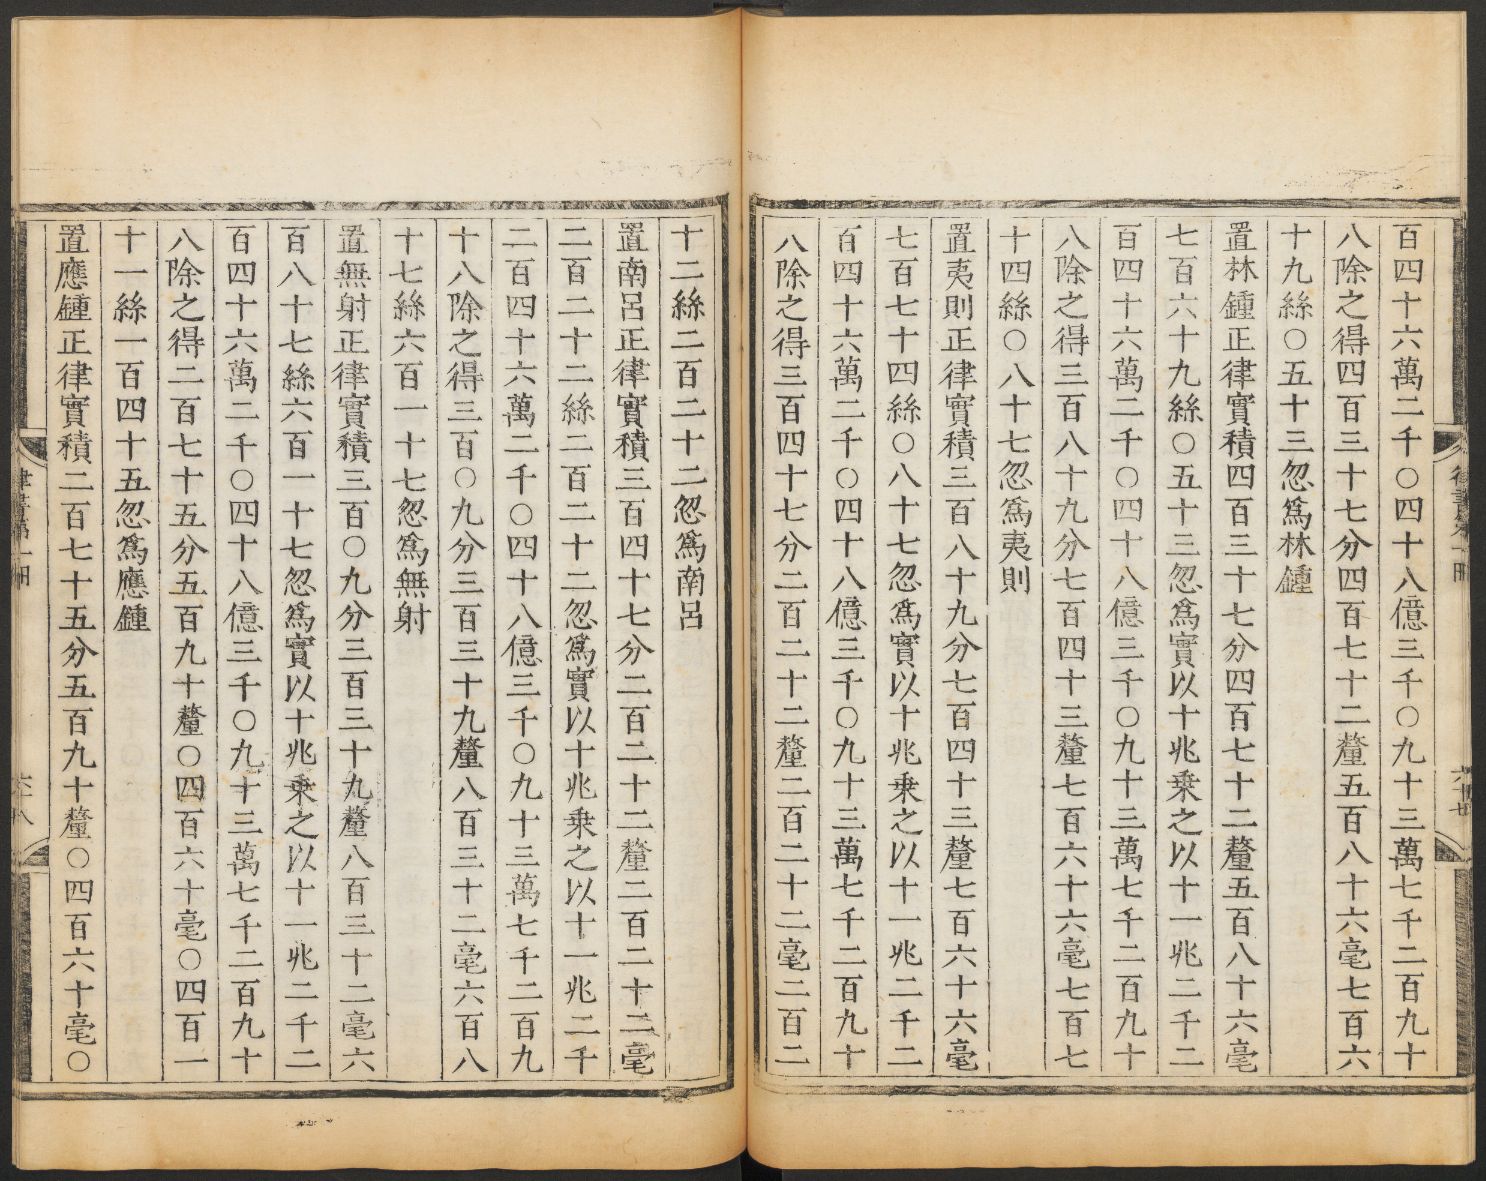 百四十六萬二千〇四十八億三千〇九十三萬七千二百九十
八除之得四百三十七分四百七十二釐五百八十六毫七百六
十九絲〇五十三忽爲林鍾
置林鍾正律實積四百三十七分四百七十二釐五百八十六毫
七百六十九絲〇五十三忽爲實以十兆乗之以十一兆二千二
百四十六萬二千〇四十八億三千〇九十三萬七千二百九十
八除之得三百八十九分七百四十三釐七百六十六毫七百七
十四絲〇八十七忽爲夷則
置夷則正律實積三百八十九分七百四十三釐七百六十六毫
七百七十四絲〇八十七忽爲實以十兆乗之以十一兆二千二
百四十六萬二千〇四十八億三千〇九十三萬七千二百九十
八除之得三百四十七分二百二十二釐二百二十二毫二百二
十二絲二百二十二忽爲南呂
置南呂正律實積三百四十七分二百二十二釐二百二十二毫
二百二十二絲二百二十二忽爲實以十兆乗之以十一兆二千
二百四十六萬二千〇四十八億三千〇九十三萬七千二百九
十八除之得三百〇九分三百三十九釐八百三十二毫六百八
十七絲六百一十七忽爲無射
置無射正律實積三百〇九分三百三十九釐八百三十二毫六
百八十七絲六百一十七忽爲實以十兆乗之以十一兆二千二
百四十六萬二千〇四十八億三千〇九十三萬七千二百九十
八除之得二百七十五分五百九十釐〇四百六十毫〇四百一
十一絲一百四十五忽爲應鍾
置應鍾正律實積二百七十五分五百九十釐〇四百六十毫〇